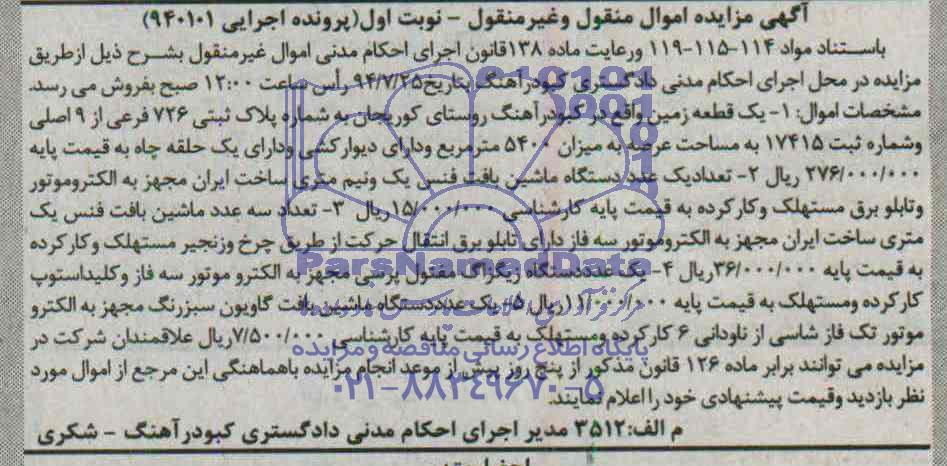 آگهی مزایده اموال منقول وغیرمنقول - نوبت اول(پرونده اجرایی ۹۴۰۱۰۱)
باستناد مواد ۱۱۴-۱۱۵-۱۱۹ ورعایت ماده ۱۳۸قانون اجرای احکام مدنی اموال غیرمنقول بشرح ذیل ازطریق
مزایده در محل اجرای احکام مدنی دادگستری کبودرآهنگ بتاریخ۹۴/۷/۲۵ رأس ساعت ۱۲:۰۰ صبح بفروش می رسد.
مشخصات اموال: ۱- یک قطعه زمین واقع در کبودرآهنگ روستای کوریجان به شماره پلاک ثبتی ۷۲۶ فرعی از ۹ اصلی
وشماره ثبت ۱۷۴۱۵ به مساحت عرصه به میزان ۵۴۰۰ مترمربع ودارای دیوارکشی ودارای یک حلقه چاه به قیمت پایه
۲۷۶/۰۰۰/۰۰۰ ریال ۲- تعدادیک عدد دستگاه ماشین بافت فنس یک ونیم متری ساخت ایران مجهز به الکتروموتور
وتابلو برق مستهلک وکارکرده به قیمت پایه کارشناسی ۱۵/۰۰۰/۰۰۰ریال ۳- تعداد سه عدد ماشین بافت فنس یک
متری ساخت ایران مجهز به الکتروموتور سه فاز دارای تابلو برق انتقال حرکت از طریق چرخ وزنجیر مستهلک وکارکرده
به قیمت پایه ۳۶/۰۰۰/۰۰۰ریال ۴- یک عدددستگاه زیگزاگ مفتول پرسی مجهز به الکترو موتور سه فاز وکلیداستوپ
کارکرده ومستهلک به قیمت پایه ۱۱/۰۰۰/۰۰۰ریال ۵- یک عدددستگاه ماشین بافت گاویون سبزرنگ مجهز به الکترو
موتور تک فاز شاسی از ناودانی ۶ کارکرده ومستهلک به قیمت پایه کارشناسی ۷/۵۰۰/۰۰۰ریال علاقمندان شرکت در
مزایده می توانند برابر ماده ۱۲۶ قانون مذکور از پنج روز پیش از موعد انجام مزایده باهماهنگی این مرجع از اموال مورد
نظر بازدید وقیمت پیشنهادی خود را اعلام نمایند.
م الف:۳۵۱۲ مدیر اجرای احکام مدنی دادگستری کبودرآهنگ - شکری
ParsNamadData
پایگاه اطلاع رسانی مناقصه و مزایده
۰۲۱-۸۸۳۴۹۶۷۰-۵